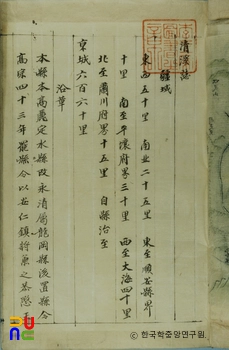 清溪誌
疆域
東西五十里 南北二十五里 東至順安縣界
十里 南至平壤府界三十里 西至大海四十里
北至肅川府界十五里 自縣治至
京城六百六十里
沿革
本縣本高麗定水縣改永清屬龍岡縣後置縣令
高宗四十三年
ⓒ 한국학중앙연구원